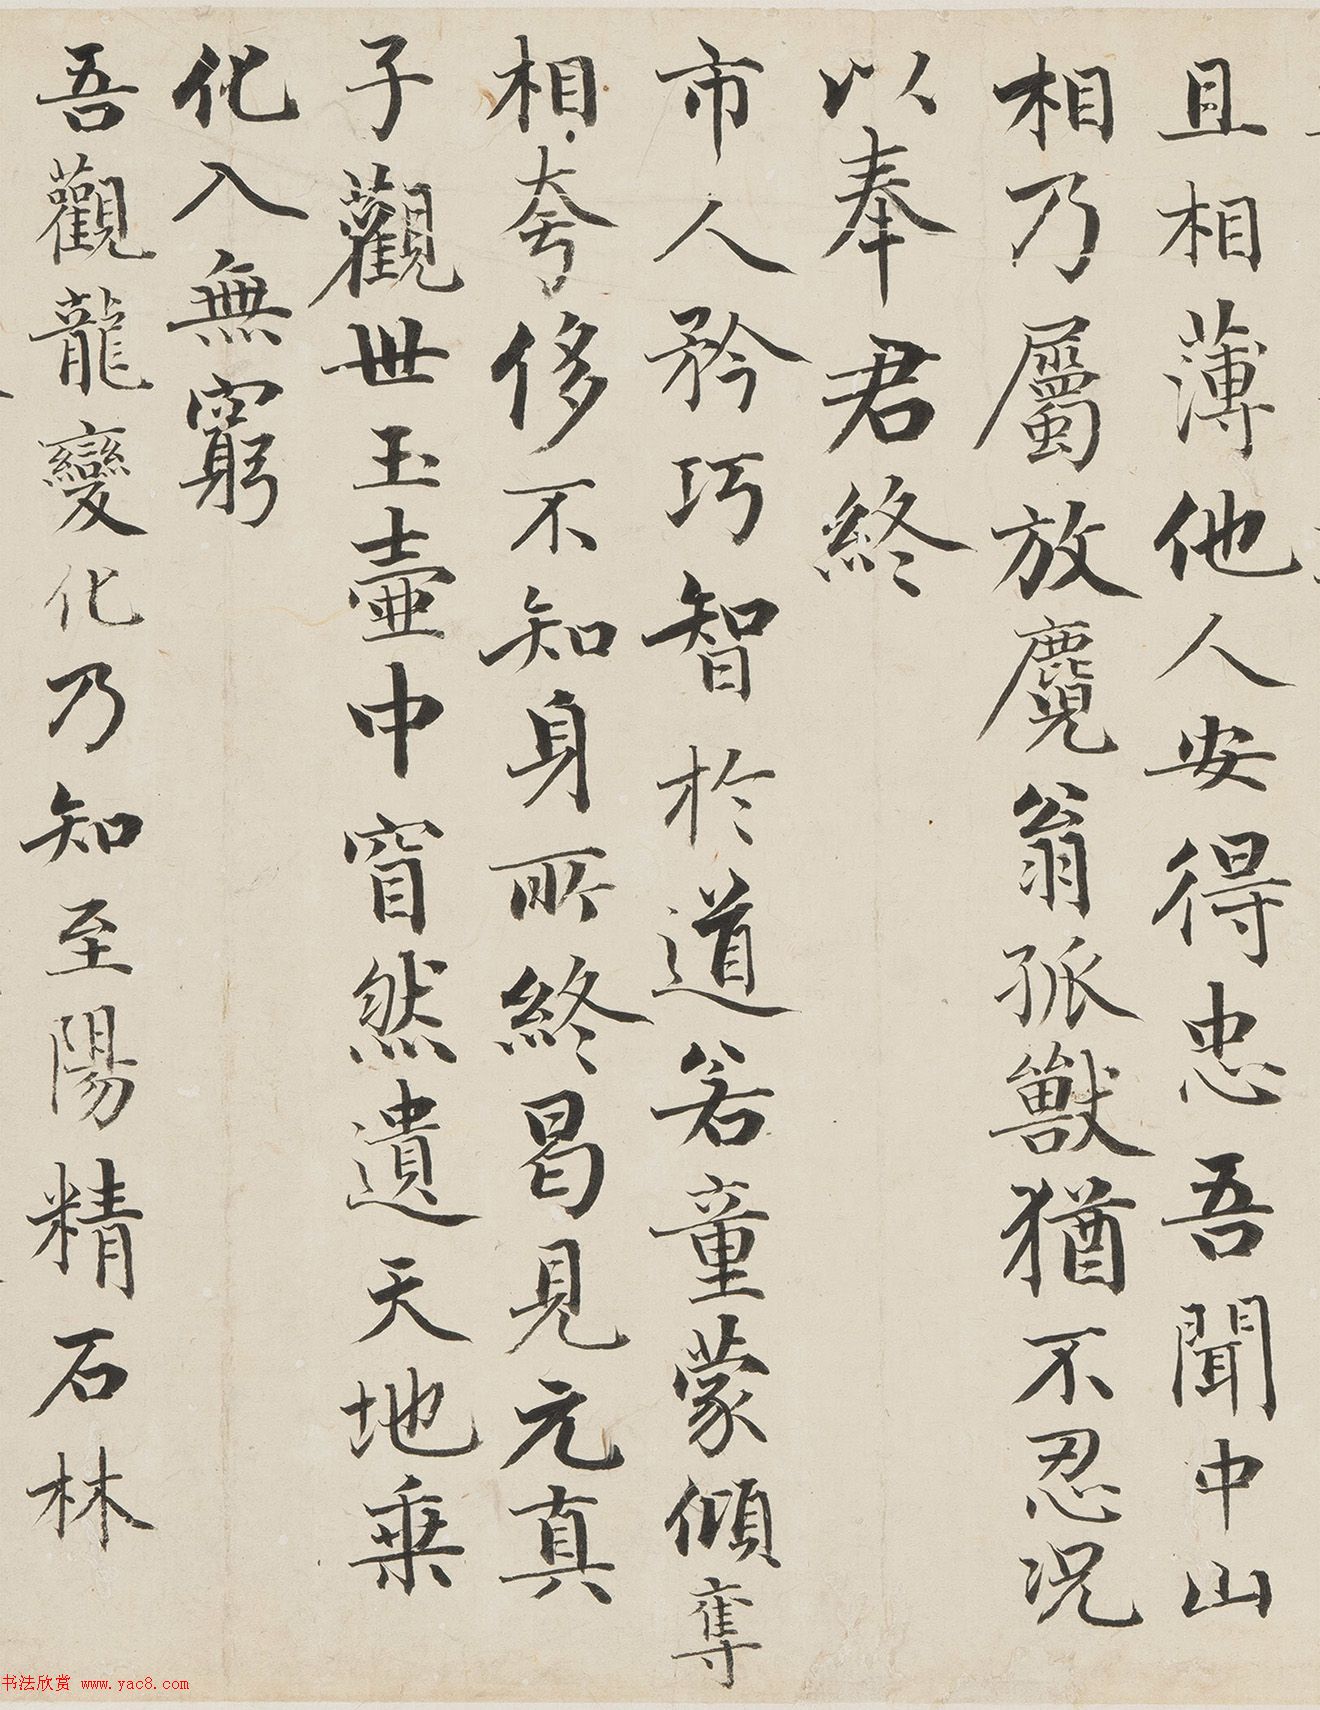 且相薄他人安得忠吾聞中山
相乃屬放麑翁孤獸猶不忍況
以奉君終
市人矜巧智於道若童蒙傾奪
相夸侈不知身所終曷見元真
子觀世玉壺中窅然遺天地乗
化入無窮
吾觀龍變化乃知至陽精石林
书法欣赏 www.yac8.com